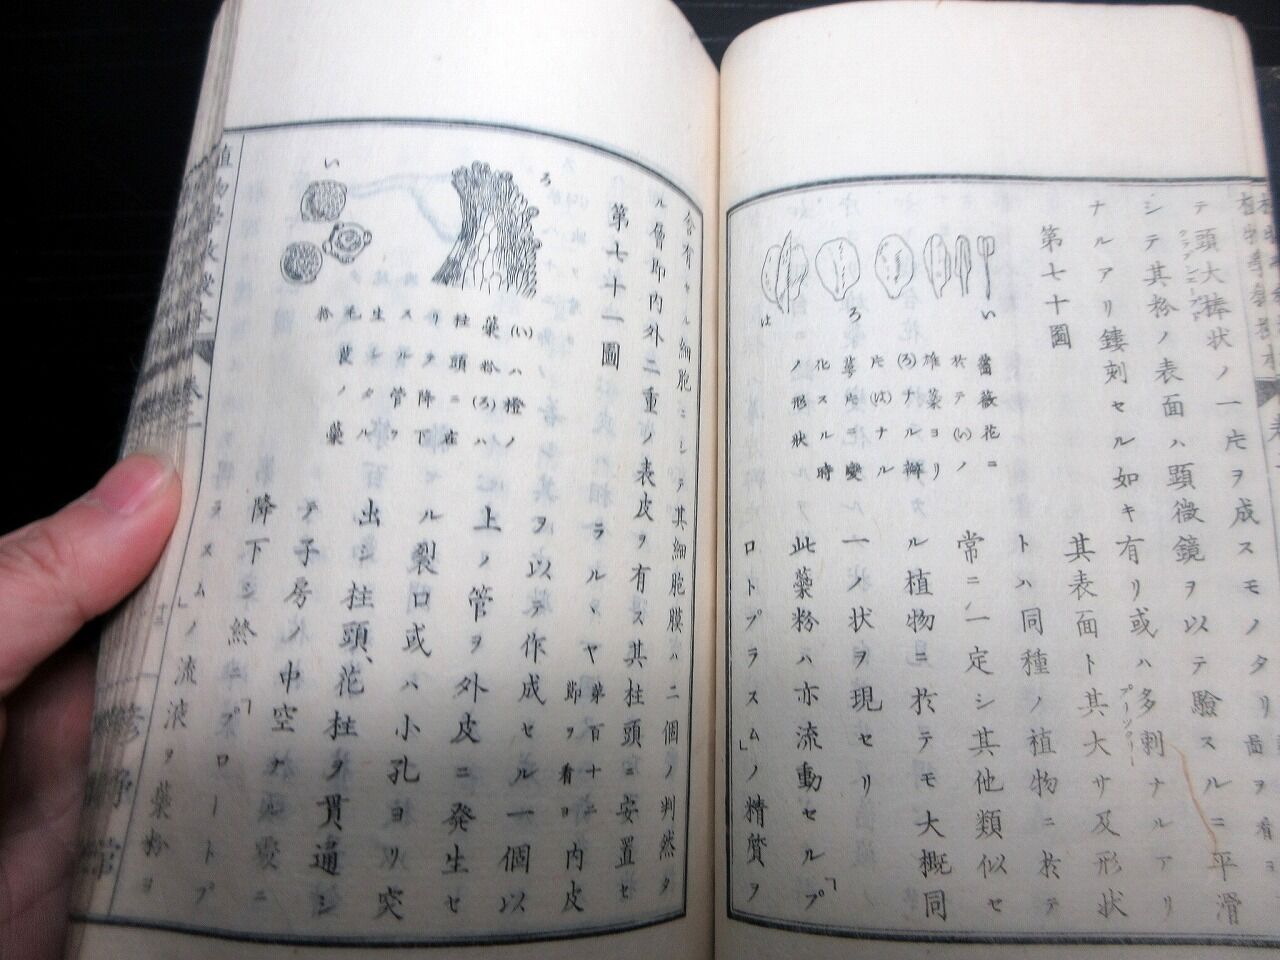 テ頭大棒状ノ一片ヲ成スモノタリ
シテ其粉ノ表面ハ顕微鏡ヲ以テ驗スルニ平滑
ナルアリ鏤刻セル如キ有リ或ハ多刺ナルアリ
第七十圖
い
ろ
は
薔薇花ニ
於テ(い)ノ
雄蘂ヨリ
(ろ)ナル瓣
片(は)ナル
萼片ニ變
化スル時
ノ形狀
其表面ト其大サ及形状
トハ同種ノ植物ニ於テ
常ニ一定シ其他類似セ
ル植物ニ於テモ大概同
一ノ状ヲ現セリ
此蘂粉ハ亦流動セル「プ
ロトプラスム」ノ精質ヲ
含有セル細胞ニシテ其細胞膜ハ二個ノ判然タ
ル層即内外二重ノ表皮ヲ有ス其柱頭ニ安置セ
第七十一圖
ろ
い
(い)ハ橙ノ
蘂粉(ろ)ハ
柱頭ニ在
リヲ降下
スル管ヲ
生シタル
毛茛ノ蘂
粉
ラルヽヤ第百十二節ヲ看ヨ内皮
ヲ以テ作成セル一個以
上ノ管ヲ外皮ニ発生セ
ル裂口或ハ小孔ヨリ突
出シ柱頭、花柱ヲ貫通シ
テ子房ノ中空ナル
降下シ終ニ「プロートプ
ラスム」ノ流液ヲ蘂粉ヨ
植物學教授本
巻二